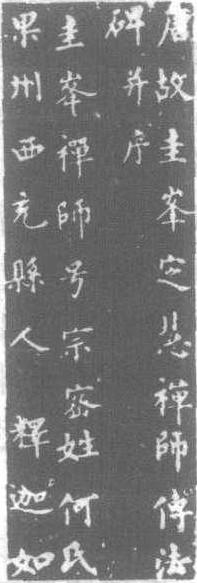 唐故圭峯定慧禪師傳法
碑并序
圭峯禪師号宗密姓何氏
果州西充縣人釋迦如